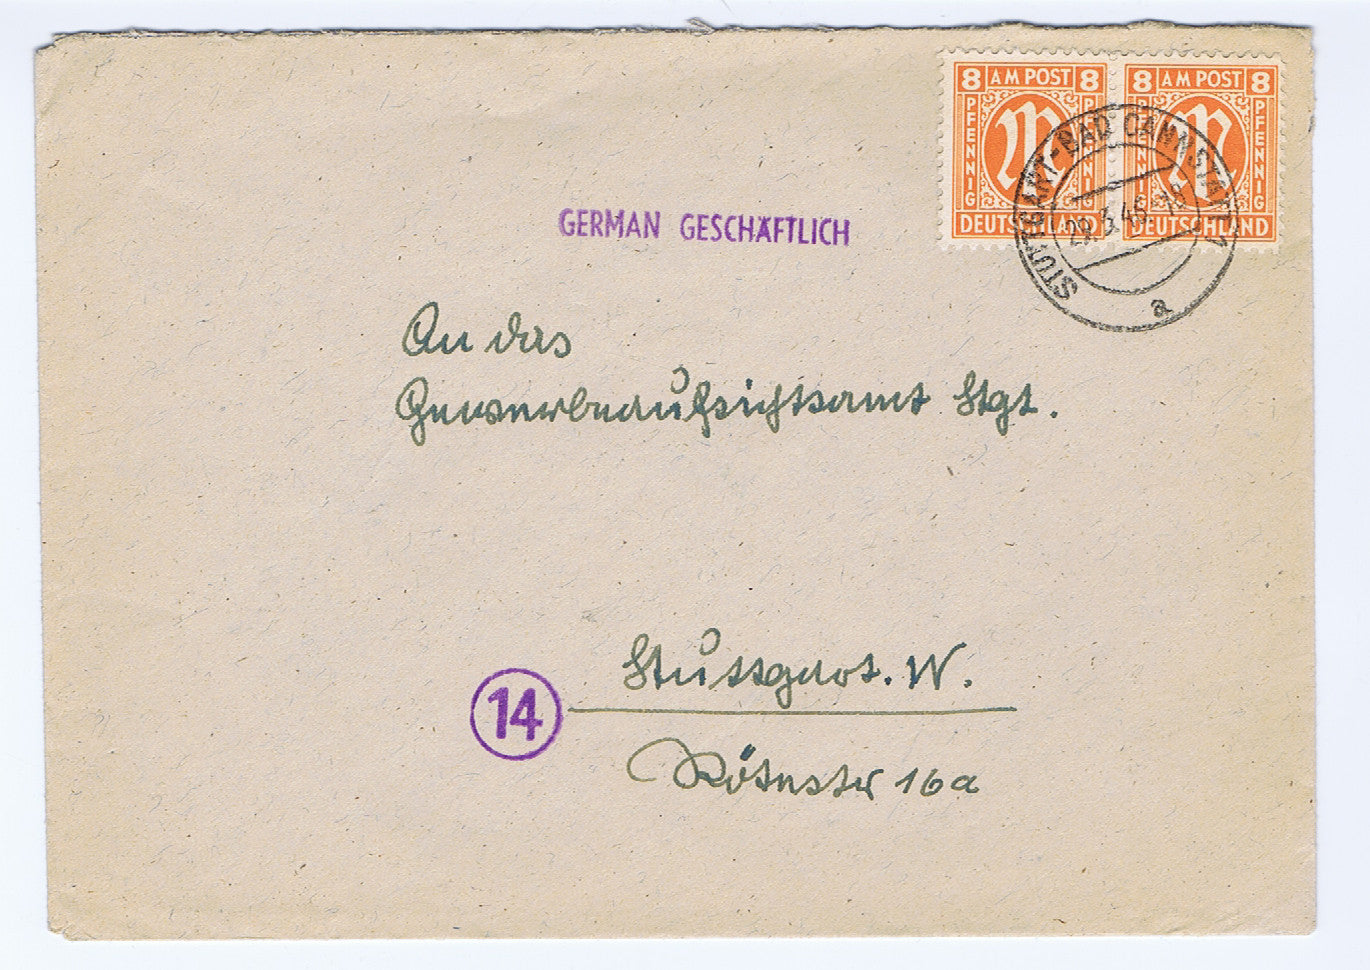 8 AM POST 8
PFENNIG PFENNIG
DEUTSCHLAND
8 AM POST 8
PFENNIG PFENNIG
DEUTSCHLAND
STUTTGART-BAD CANNSTATT 1
29.3.46
a
GERMAN GESCHÄFTLICH
An das
Gewerbeaufsichtsamt Stgt.
Stuttgart. W.
14
Rötestr 16a